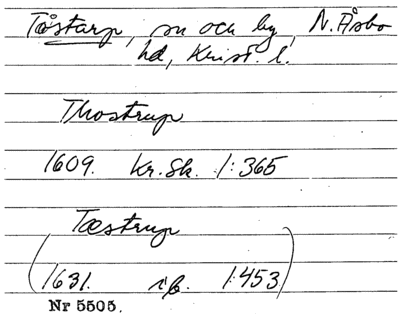 Tåstarp, sn och by, N. Åsbo
hd, Krist. l.
Thostrup
1609. Kr. Sk. 1:365
(Tæstrup
1631. ib. 1:453)
Nr 5505.